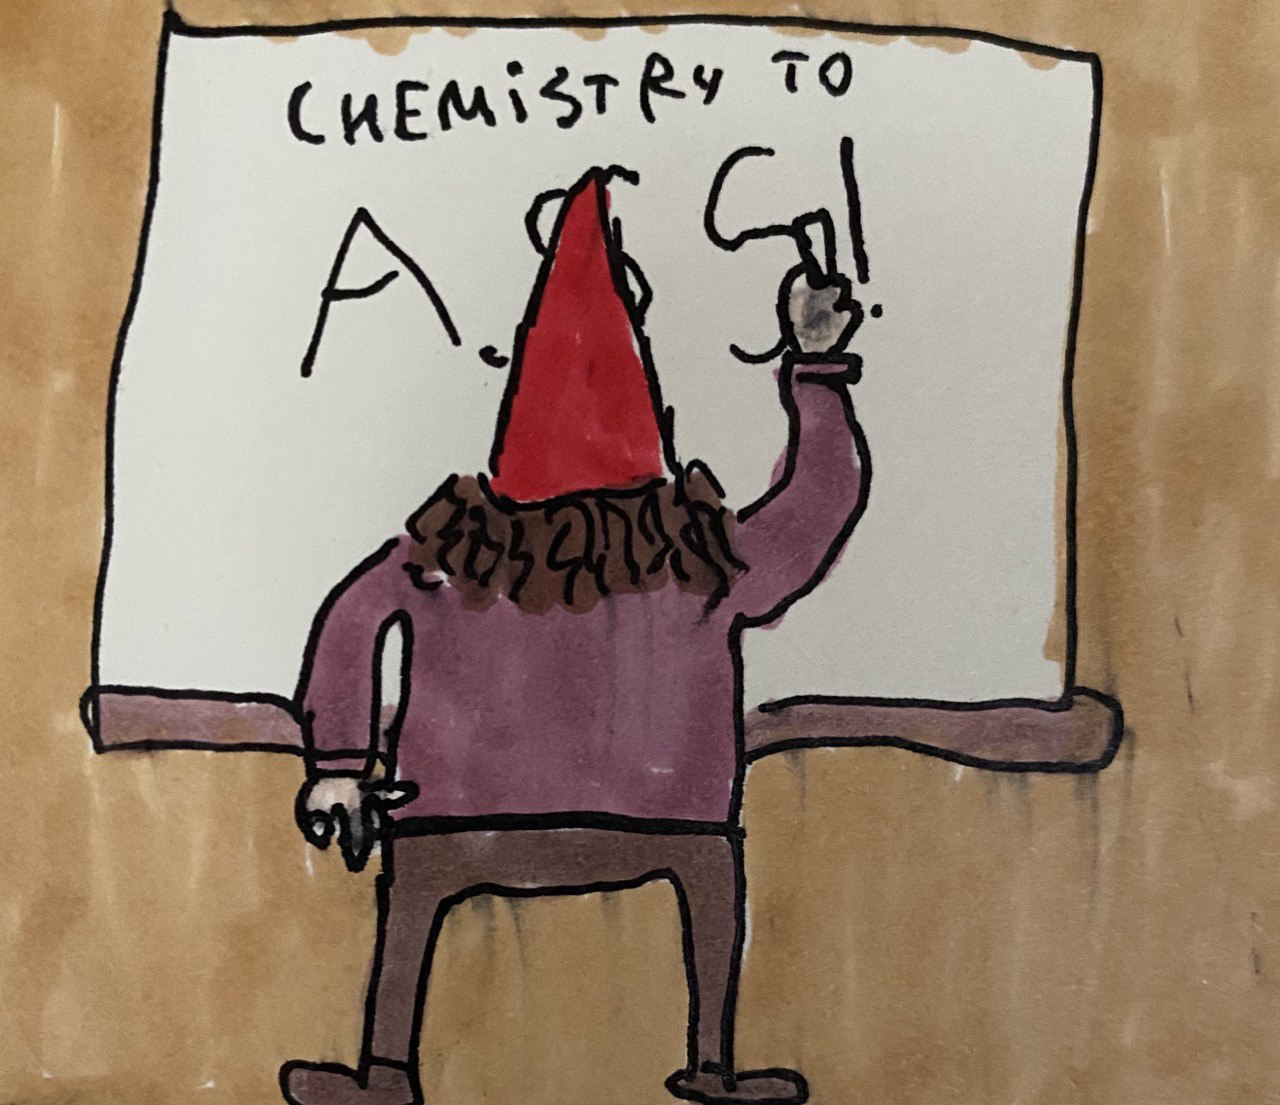 CHEMiSTRY TO
A.